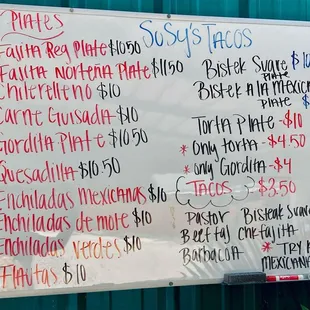 PLATES
SuSy's TACOS
Fajita Reg Plate $10.50
Fajita Norteña Plate $11.50
Chilerelleno $10
Carne Guisada $10
Gordita Plate $10.50
Quesadilla $10.50
Enchiladas Mexicanas $10
Enchiladas de mole $10
Enchiladas verdes $10
Flautas $10
Bistek Suave Plate
Bistek A la Mexican
Plate $
Torta Plate - $10
* only torta - $4.50
* only Gordita - $4
TACOS $3.50
Pastor Bisteak Suave
Beef faj chk fajita
Barbacoa * TRY
MEXICAN